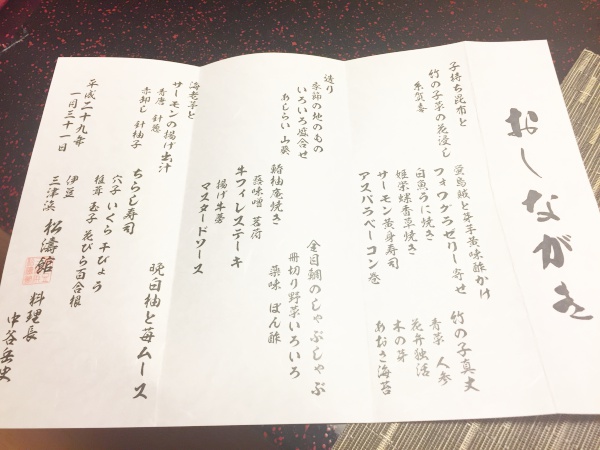 おしながき
子持ち昆布と
竹の子菜の花浸し
糸賀喜
蛍烏賊と芽芋黄味酢かけ
フォワグラゼリー寄せ
白魚うに焼き
姫栄螺香草焼き
サーモン黄身寿司
アスパラベーコン巻
竹の子真丈
青菜 人参
花弁独活
木の芽
あおさ海苔
造り
季節の地のもの
いろいろ盛合せ
あしらい 山葵
金目鯛のしゃぶしゃぶ
冊切り野菜いろいろ
薬味 ぽん酢
鰆柚庵焼き
蕗味噌 茗荷
牛フィレステーキ
揚げ牛蒡
マスタードソース
海老芋と
サーモンの揚げ出汁
青唐 針葱
赤卸し 針柚子
ちらし寿司
穴子 いくら 干ぴょう
椎茸 玉子 花びら百合根
晩白柚と苺ムース
平成二十九年
一月三十一日
伊豆
三津浜 松濤館
料理長
中谷岳史